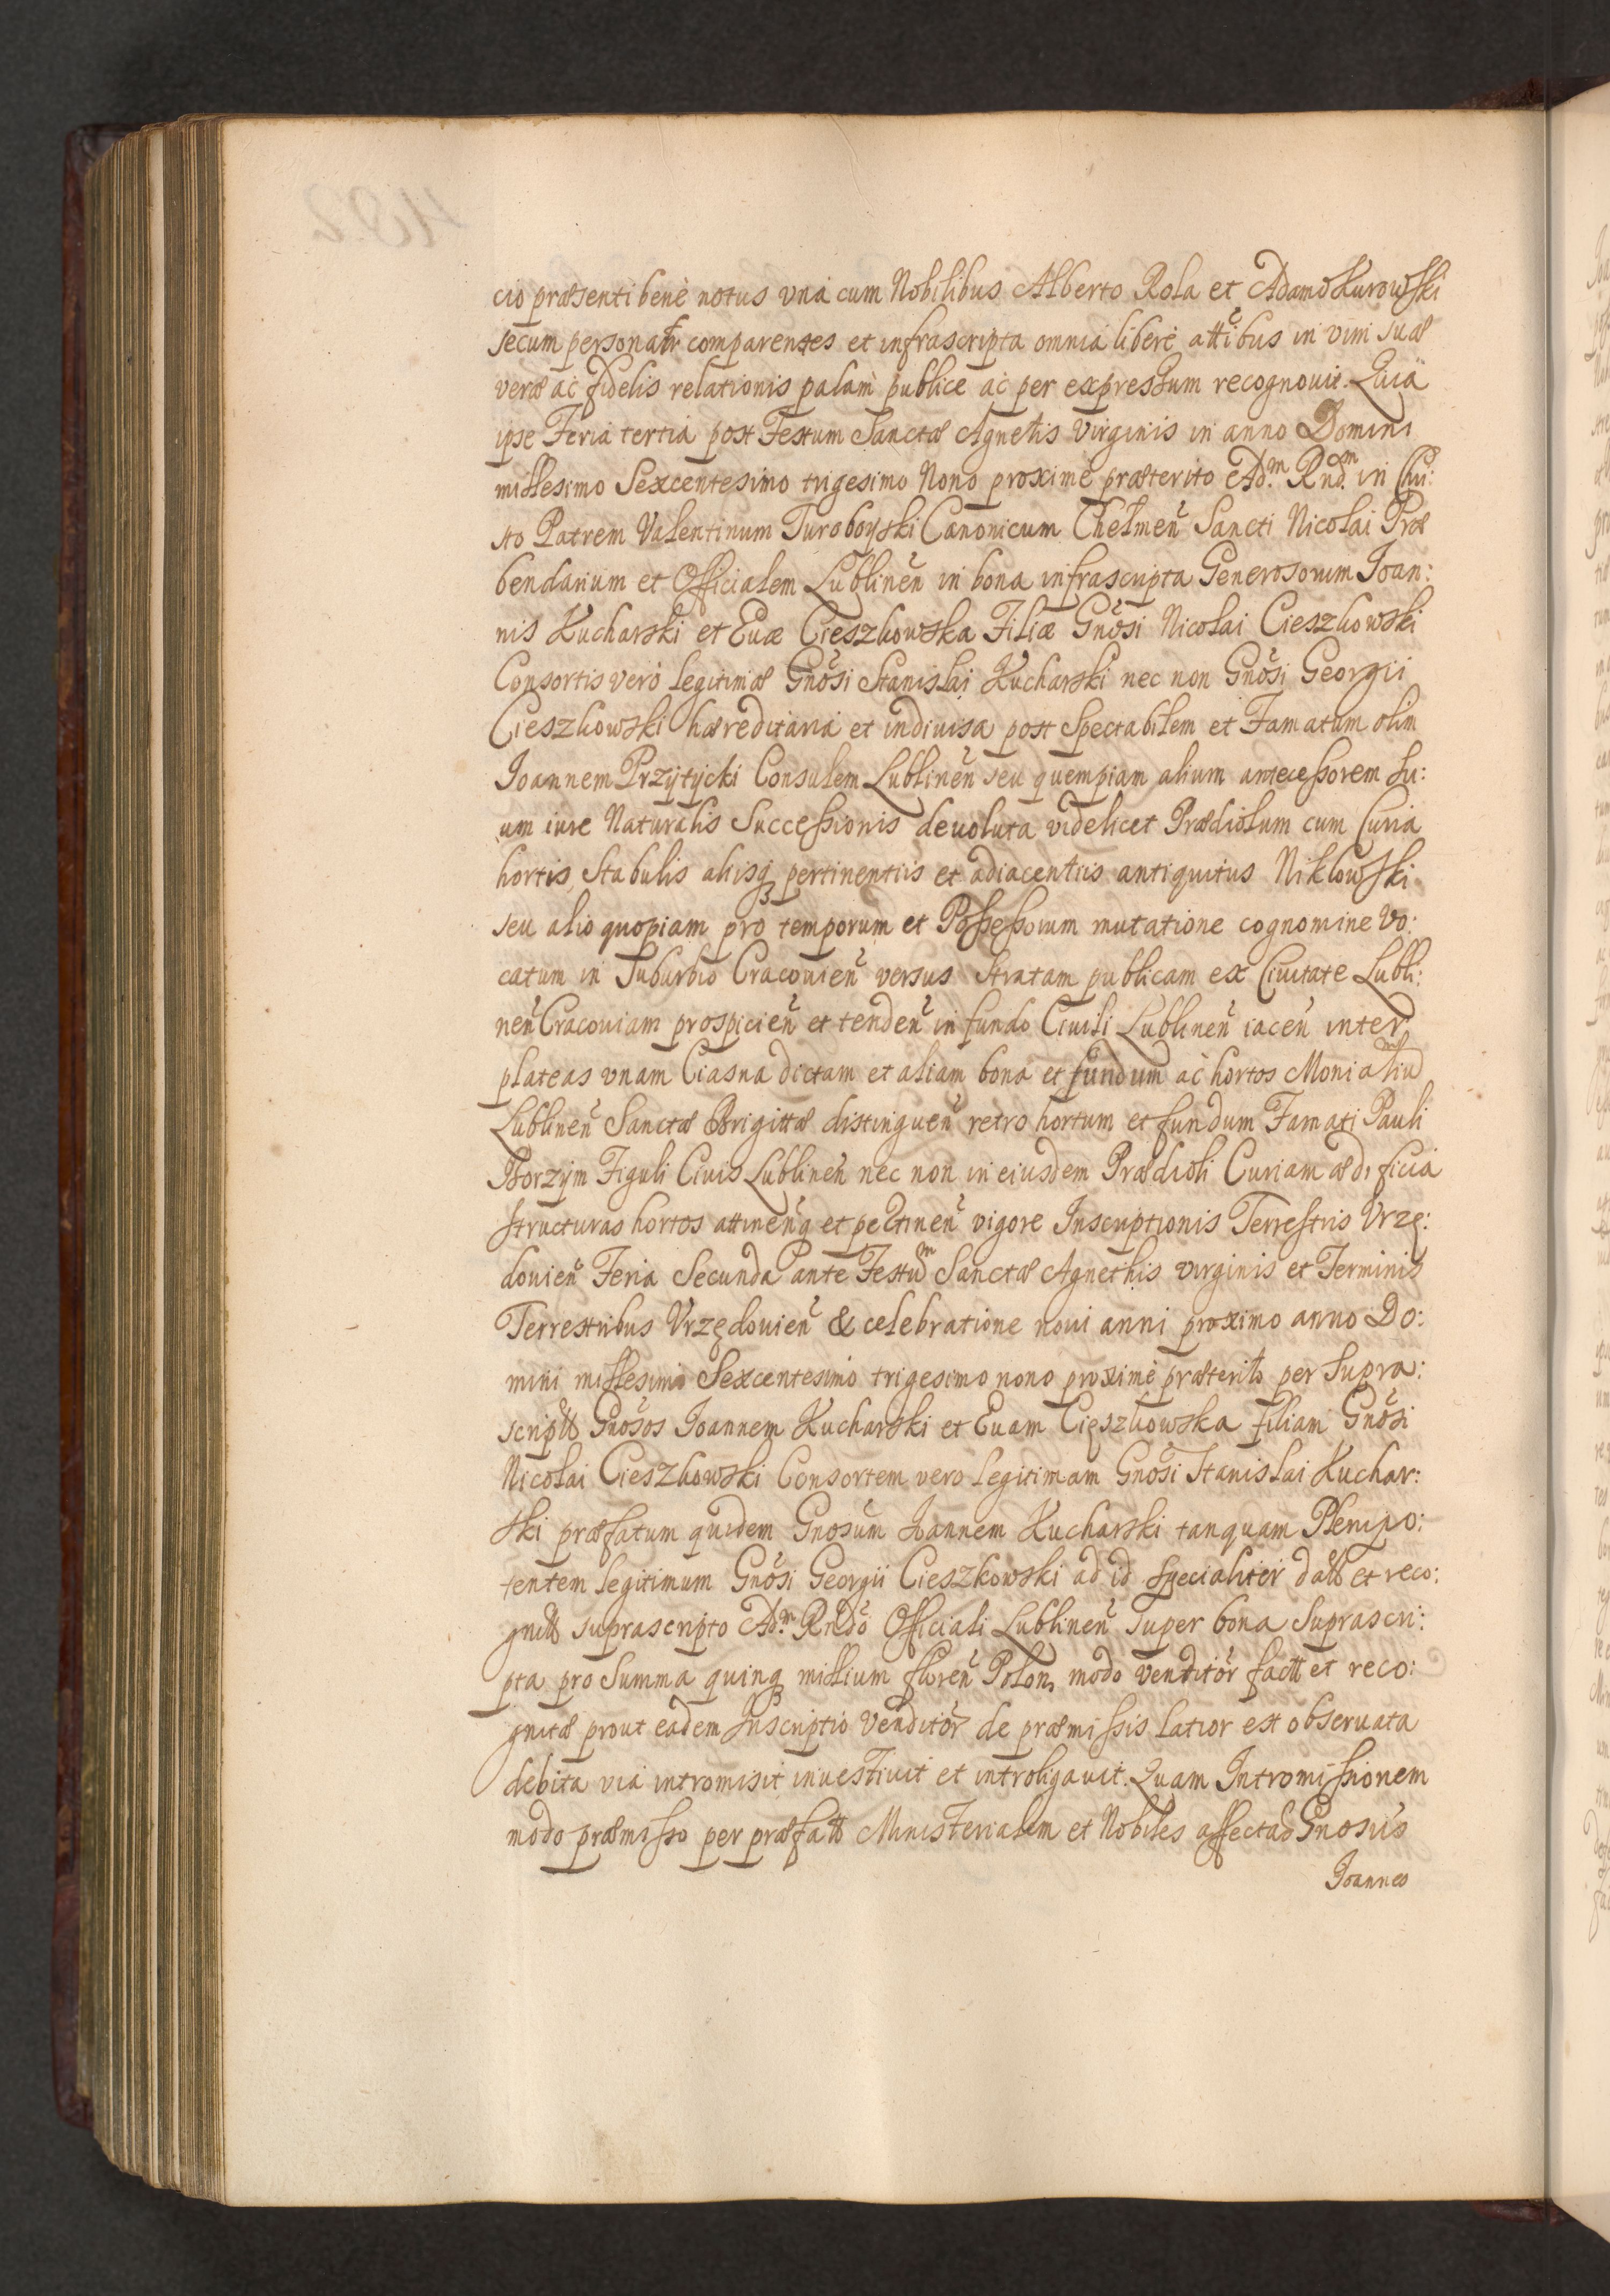 cio præsenti bene notus vna cum Nobilibus Alberto Rola et Adamo Kurowski
secum personalr comparentes et infrascripta omnia libere attibus in vim suæ
veræ ac fidelis relationis palam publice ac per expressum recognouit. Quia
ipse Feria tertia post Festum Sanctæ Agnetis Virginis in anno Domini
millesimo Sexcentesimo trigesimo Nono proxime præterito Adm Rndm in Chri:
sto Patrem Valentinum Turoboyski Canonicum Chelmen̄ Sancti Nicolai Præ
bendarium et Officialem Lublinen̄ in bona infrascripta Generosorum Ioan:
nis Kucharski et Euæ Cieszkowska Filiæ Gnosi Nicolai Cieszkowski
Consortis vero legitimæ Gnosi Stanislai Kucharski nec non Gnosi Georgii
Cieszkowski hæreditaria et indiuisa post Spectabilem et Famatum olim
Ioannem Przytycki Consulem Lublinen̄ seu quempiam alium antecessorem su:
um iure Naturalis Successionis deuoluta videlicet Prædiolum cum Curia
hortis, Stabulis alijsq3 pertinentiis et adiacentiis antiquitus Niklowski
seu alio quopiam pro temporum et Possessorum mutatione cognomine vo:
catum in Suburbio Cracouien̄ versus Stratam publicam ex Ciuitate Lubli:
nen̄ Cracouiam prospicien̄ et tenden̄ in fundo Ciuili Lublinen̄ iacen̄ inter
plateas vnam Ciasna dictam et aliam bona et fundum ac hortos Monialiū
Lublinen̄ Sanctæ Brigittæ distinguen̄ retro hortum et fundum Famati Pauli
Borzym Figuli Ciuis Lublinen̄ nec non in eiusdem Prædioli Curiam ædificia
structuras hortos attinen̄q et pertinen̄ vigore Inscriptionis Terrestris Vrzę:
douien̄ Feria Secunda ante Festūm Sanctæ Agnethis virginis et Terminis
Terrestribus Vrzędouien̄ & celebratione noui anni proximo anno Do:
mini millesimo Sexcentesimo trigesimo nono proxime præterito per supra:
scriptt Gnosos Ioannem Kucharski et Euam Cięszkowska filiam Gnosi
Nicolai Cieszkowski Consortem vero legitimam Gnosi Stanislai Kuchar:
ski præfatum quidem Gnosum Ioannem Kucharski tanquam Plenipo:
tentem legitimum Gnosi Georgii Cieszkowski ad id specialiter datt et reco:
gnitt suprascripto Adm Rndo Officiali Lublinen̄ super bona suprascri:
pta pro Summa quinq3 millium floren̄ Polon, modo venditor factt et reco:
gnitæ prout eadem Inscriptio venditor de præmissis latior est obseruata
debita via intromisit inuestiuit et introligauit. Quam Intromissionem
modo præmisso per præfatt Ministerialem et Nobiles affectad Gnosus
Ioannes